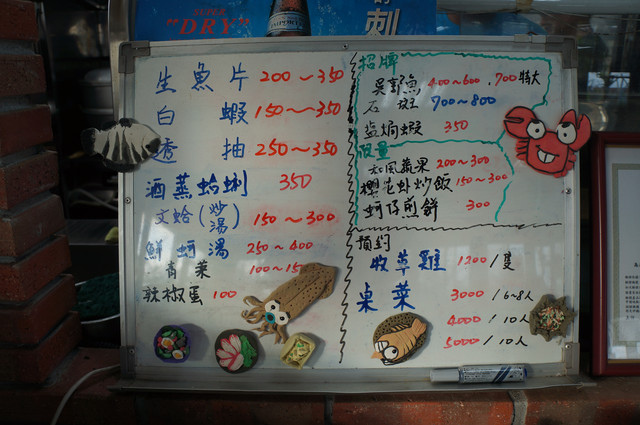 SUPER
"DRY"
刺
生魚片 200~350
白蝦 150~350
透抽 250~350
酒蒸蛤蜊 350
文蛤(炒湯) 150~300
鮮蚵湯 250~400
青菜 100~15
辣椒蛋 100
招牌
吳郭魚 400~600.700特大
石斑 700~800
塩焗蝦 350
限量
和風蘋果 200~300
櫻花卦炒飯 150~300
蚵仔煎餅 300
預約
牧草雞 1200/隻
桌菜 3000/6~8人
4000/10人
5000/10人